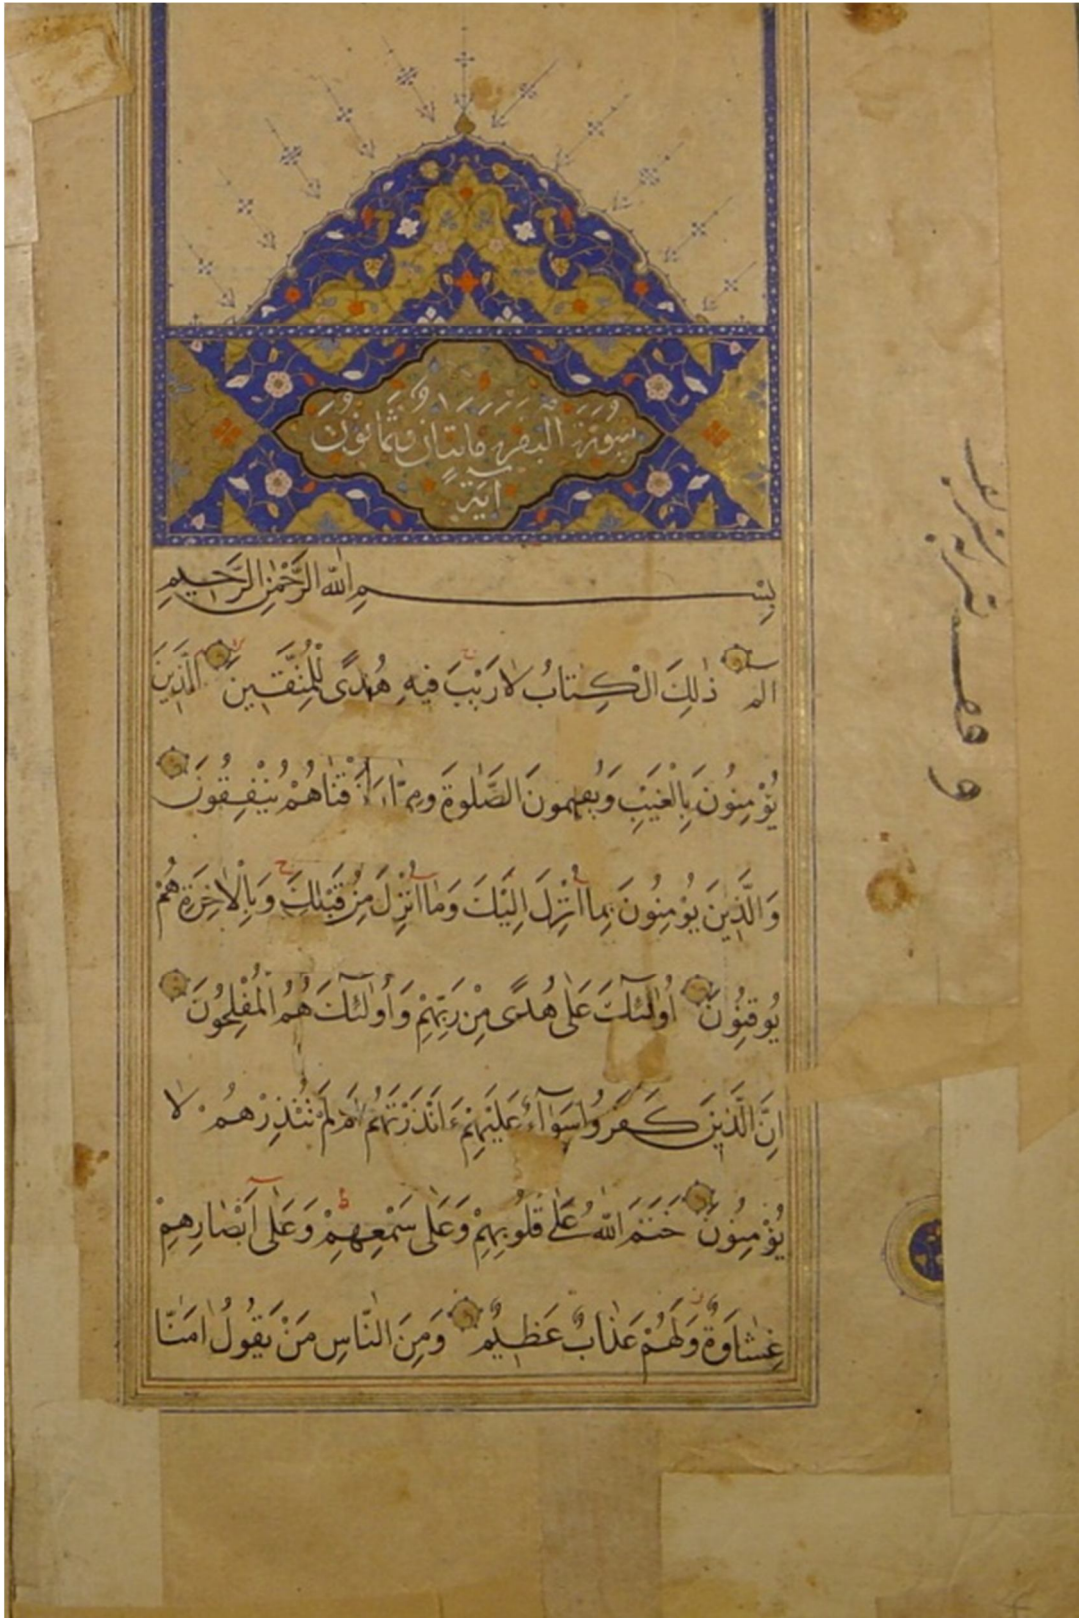 سُورَةُ الْبَقَرَةِ مِائَتَانِ وَثَمَانُونَ
آيَةً
بِسْمِ اللّٰهِ الرَّحْمٰنِ الرَّحِيمِ
الم ذٰلِكَ الْكِتَابُ لَا رَيْبَ فِيهِ هُدًى لِلْمُتَّقِينَ الَّذِينَ
يُؤْمِنُونَ بِالْغَيْبِ وَيُقِيمُونَ الصَّلٰوةَ وَمِمَّا رَزَقْنَاهُمْ يُنْفِقُونَ
وَالَّذِينَ يُؤْمِنُونَ بِمَا أُنْزِلَ إِلَيْكَ وَمَا أُنْزِلَ مِنْ قَبْلِكَ وَبِالْاٰخِرَةِ هُمْ
يُوقِنُونَ أُولٰئِكَ عَلٰى هُدًى مِنْ رَبِّهِمْ وَأُولٰئِكَ هُمُ الْمُفْلِحُونَ
اِنَّ الَّذِينَ كَفَرُوا سَوَآءٌ عَلَيْهِمْ ءَاَنْذَرْتَهُمْ اَمْ لَمْ تُنْذِرْهُمْ لَا
يُؤْمِنُونَ خَتَمَ اللّٰهُ عَلٰى قُلُوبِهِمْ وَعَلٰى سَمْعِهِمْ وَعَلٰى اَبْصَارِهِمْ
غِشَاوَةٌ وَلَهُمْ عَذَابٌ عَظِيمٌ وَمِنَ النَّاسِ مَنْ يَقُولُ اٰمَنَّا